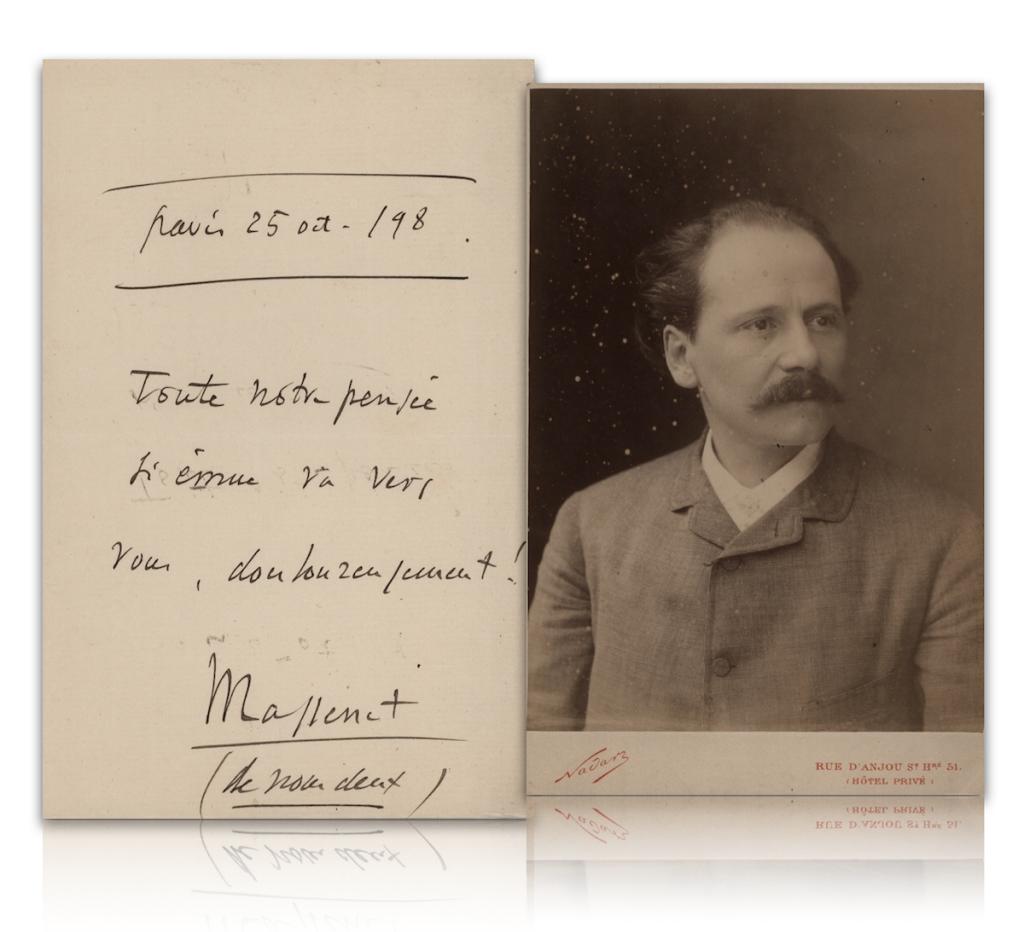 paris 25 oct - /98 .
Toute notre pensée
si émue va vers
vous, douloureusement!
Massenet
(de nous deux)
Nadar
RUE D'ANJOU ST HRÉ 51.
(HÔTEL PRIVÉ)